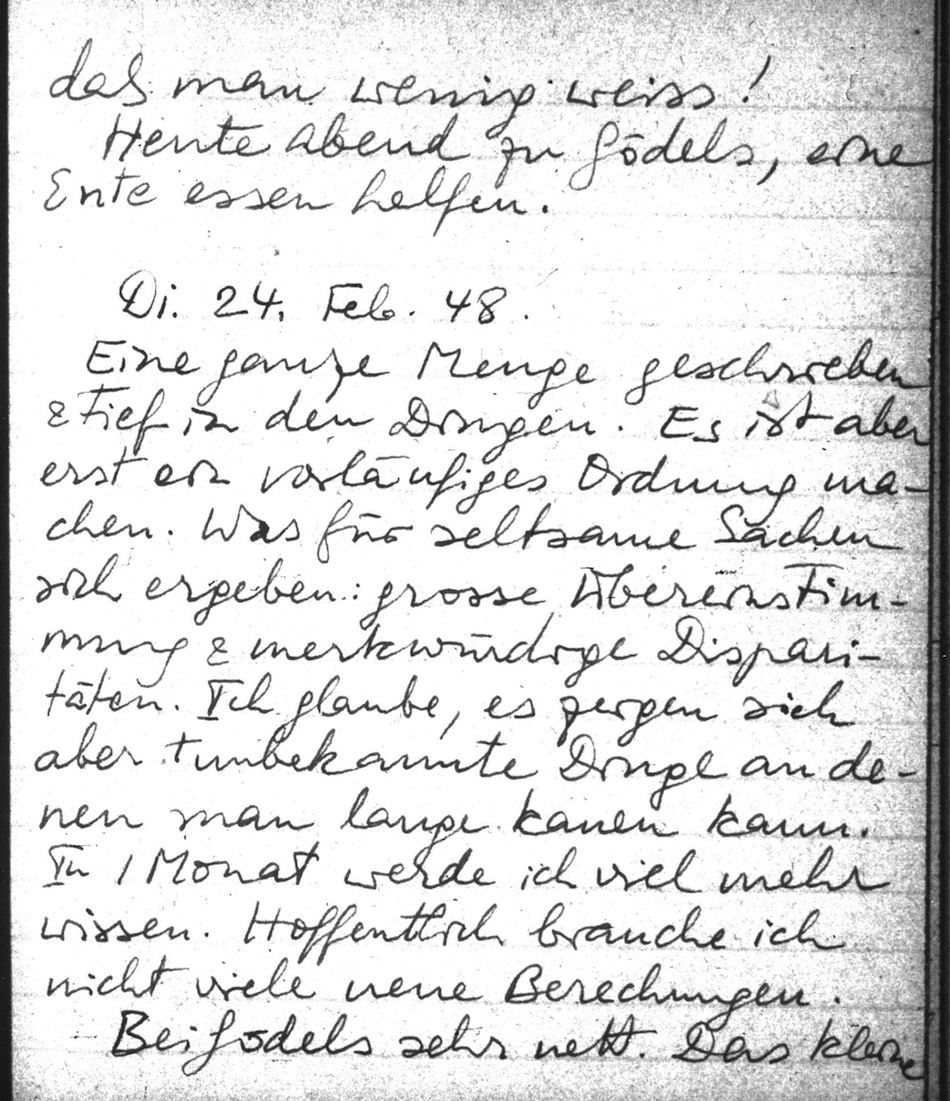 das man wenig weiss!
Heute abend zu Gödels, eine
Ente essen helfen.
Di. 24. Feb. 48.
Eine ganze Menge geschrieben
& tief in den Dingen. Es ist aber
erst ein vorläufiges Ordnung ma-
chen. Was für seltsame Sachen
sich ergeben: grosse Übereinstim-
mung & merkwürdige Dispari-
täten. Ich glaube, es zeigen sich
aber unbekannte Dinge an de-
nen man lange kauen kann.
In 1 Monat werde ich viel mehr
wissen. Hoffentlich brauche ich
nicht viele neue Berechnungen.
Bei Gödels sehr nett. Das kleine